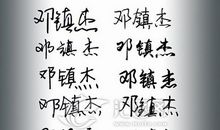 邓镇杰 邓镇杰
邓镇杰 邓镇杰
邓镇杰 邓镇杰
邓镇杰 邓镇杰